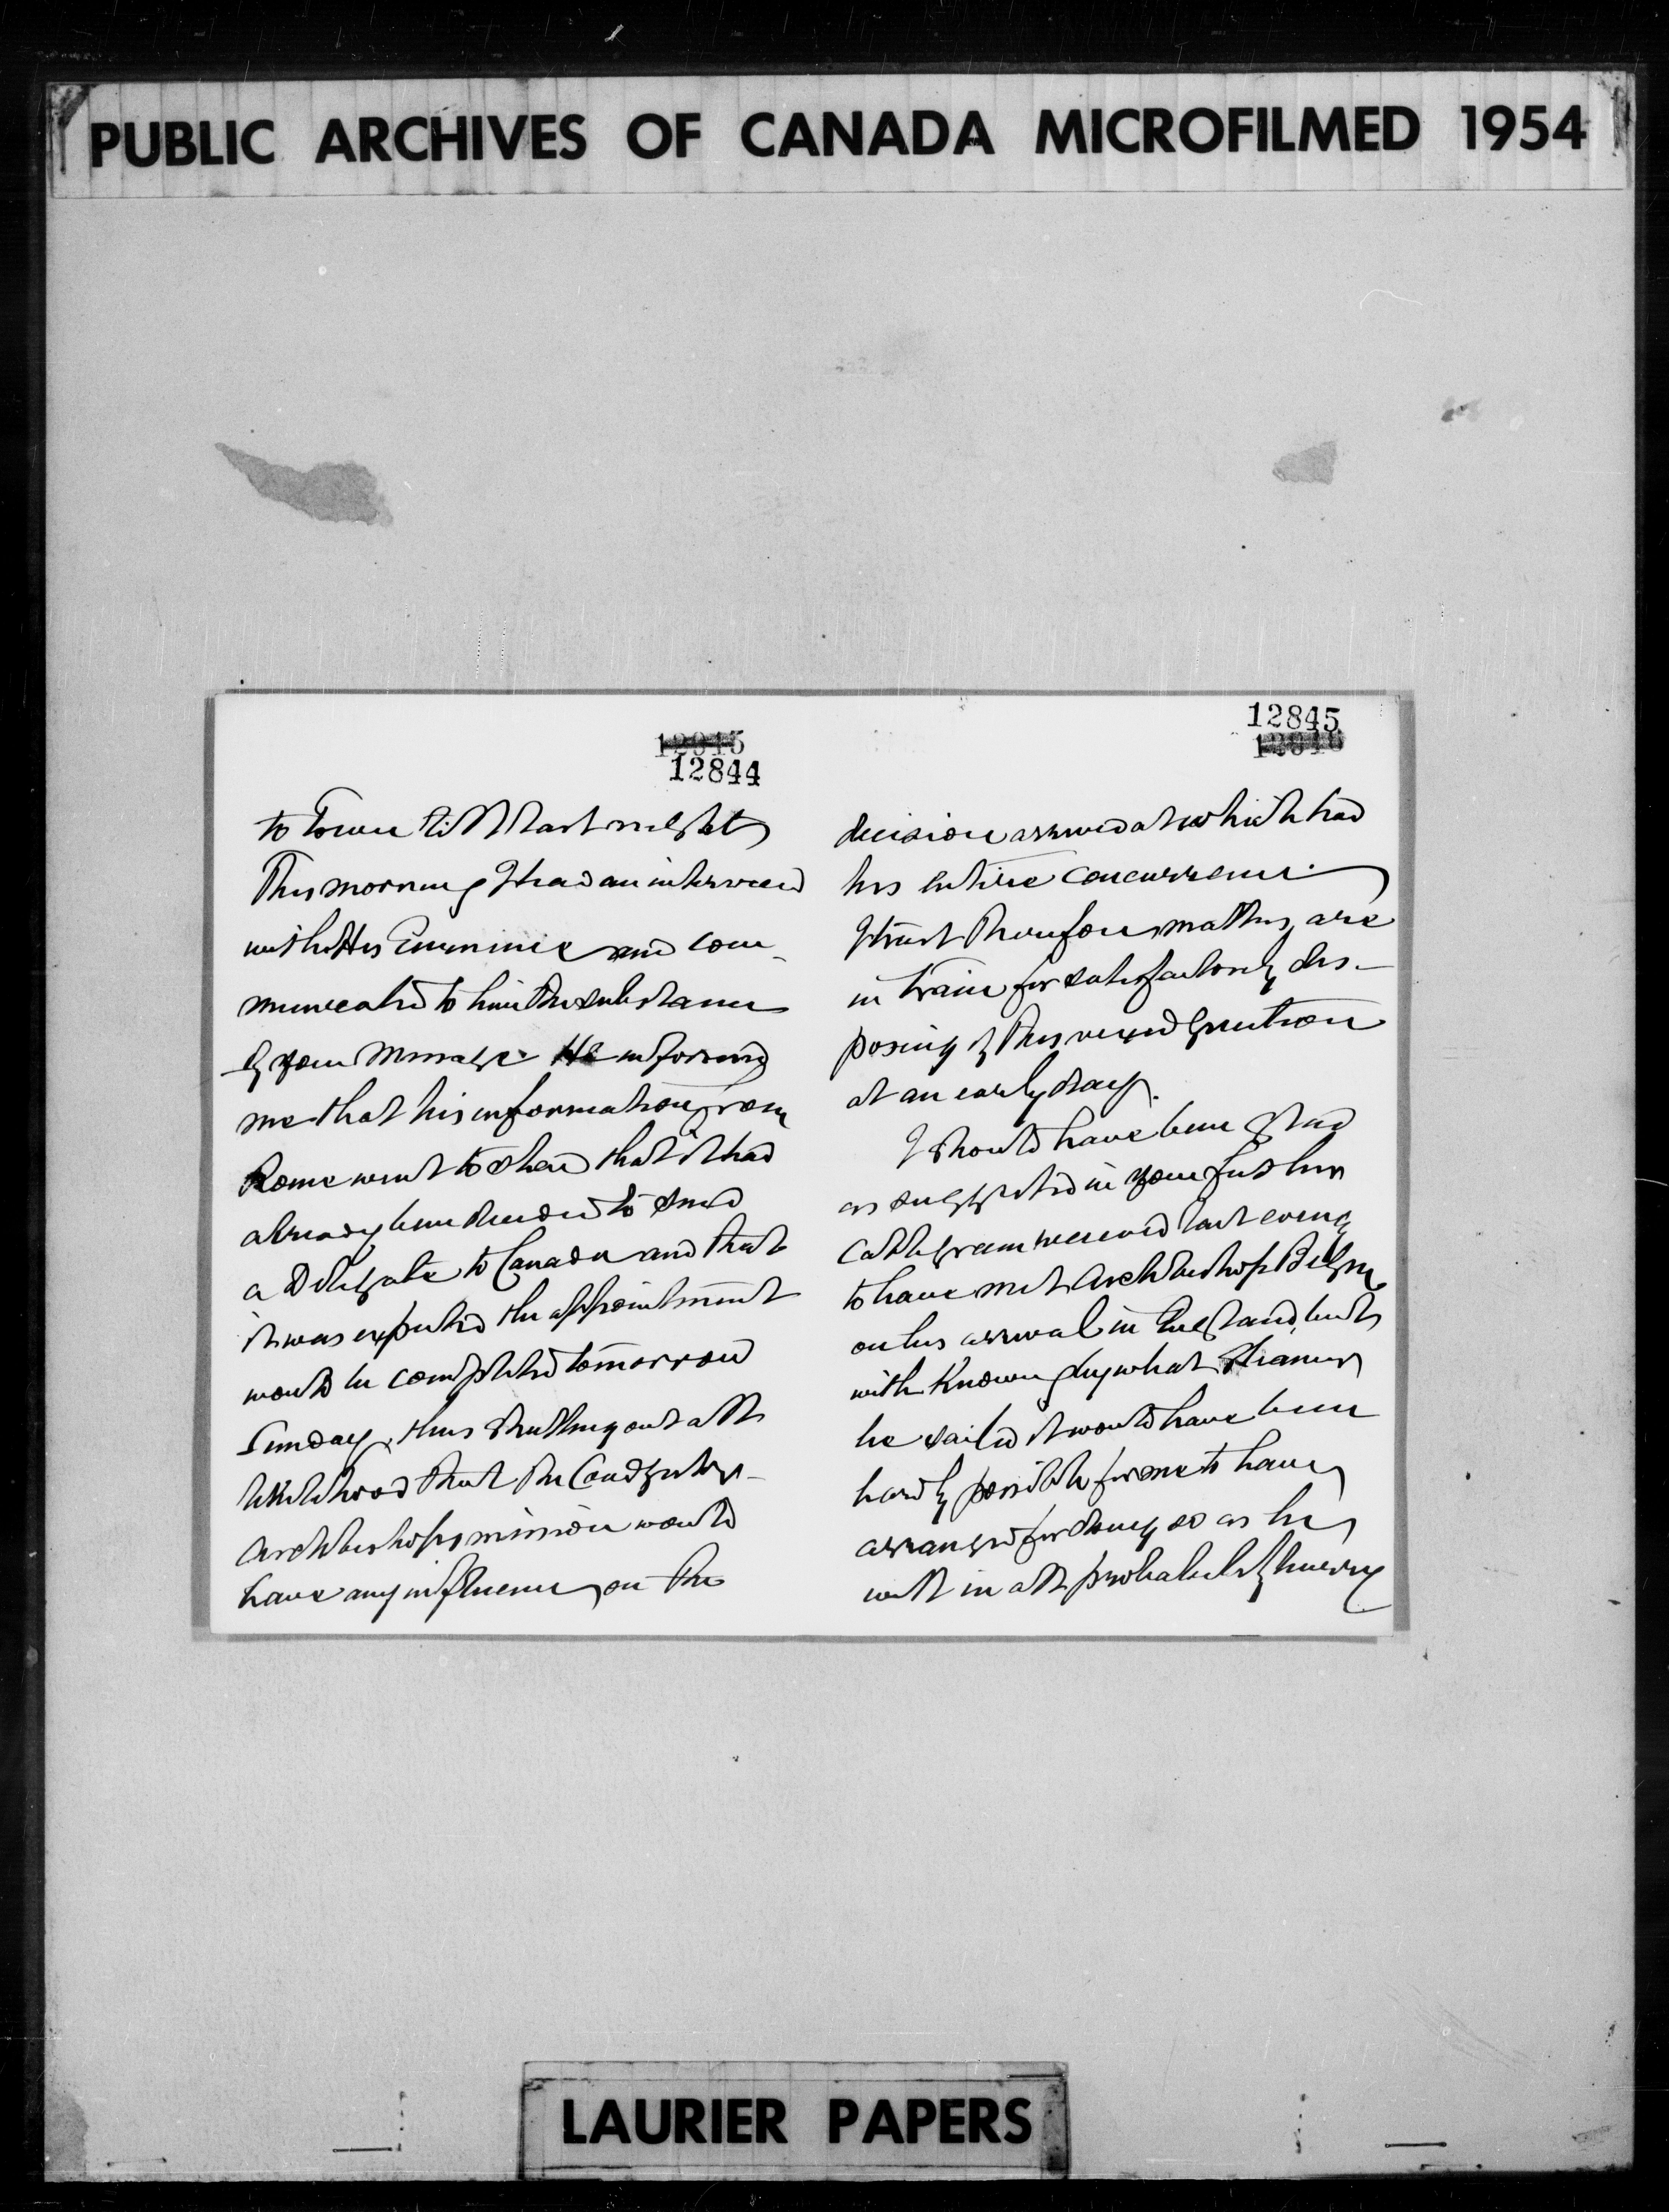 PUBLIC ARCHIVES OF CANADA MICROFILMED 1954
12844
to Town till last night
This morning I had an interview
with His Eminence and com-
municated to him the substance
of your message. He informed
me that his information from
Rome went to shew that it had
already been decided to send
a Delegate to Canada and that
it was expected the appointment
would be completed tomorrow
Sunday, thus shutting out all
likelihood that the
Archbishops mission would
have any influence on the
12845
decision arrived at which had
his entire concurrence.
I trust therefore matters are
in train for satisfactorily dis-
posing of this vexed question
at an early day.
I should have been glad
as suggested in your further
cablegram received last evening
to have met Archbishop Begin
on his arrival in England, but
with knowing by what steamer
he sailed it would have been
hardly possible for me to have
arranged for doing so as he
will in all probability hurry
LAURIER PAPERS